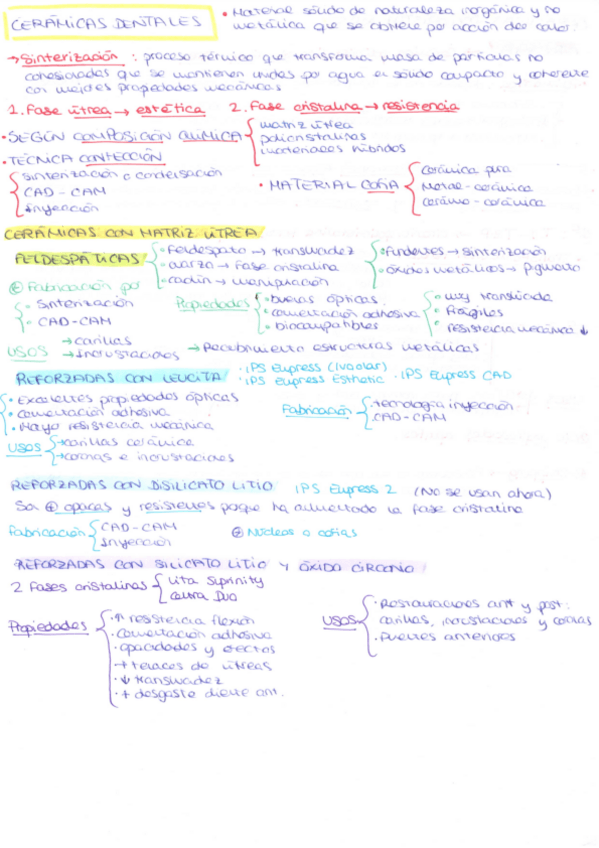 CERÁMICAS DENTALES
• Material sólido de naturaleza inorgánica y no
metálica que se obtiene por acción del calor.
→ Sinterización : proceso térmico que transforma masa de partículas no
cohesionadas que se mantienen unidas por agua el sólido compacto y coherente
con mejores propiedades mecánicas
1. Fase vítrea → estética 2. Fase cristalina → resistencia
• SEGÚN COMPOSICIÓN QUÍMICA
matriz vítrea
policristalinas
materiales híbridos
• TÉCNICA CONFECCIÓN
sinterización o condensación
CAD - CAM
Inyección
• MATERIAL COFIA
Cerámica pura
Metal - cerámica
Cerámo - cerámica
CERÁMICAS CON MATRIZ VÍTREA
FELDESPÁTICAS
• Feldespato → translucidez
• cuarzo → Fase cristalina
• caolín → manipulación
• Fundentes → sinterización
• óxidos metálicos → Pigmento
⊕ Fabricación por
• Sinterización
• CAD-CAM
Propiedades
• buenas ópticas
• cementación adhesiva
• biocompatibles
• muy translúcida
• Frágiles
• resistencia mecánica ↓
USOS
→ carillas
→ Incrustaciones
→ Recubrimiento estructuras metálicas
REFORZADAS CON LEUCITA
• IPS Empress (Ivoclar)
• IPS empress Esthetic • IPS Empress CAD
• Excelentes propiedades ópticas
• cementación adhesiva
• Mayo resistencia mecánica
Fabricación
• tecnología inyección
• CAD-CAM
USOS
→ carillas cerámica
→ coronas e incrustaciones
REFORZADAS CON DISILICATO LITIO IPS Empress 2 (No se usan ahora)
Son ⊕ opacas y resistentes porque ha aumentado la fase cristalina
Fabricación
CAD-CAM
Inyección
⊕ Núcleos o cofias
REFORZADAS CON SILICATO LITIO Y ÓXIDO CIRCONIO
2 fases cristalinas
Vita Suprinity
Celtra Duo
Propiedades
• ↑ resistencia flexión
• Cementación adhesiva
• opacidades y efectos
• + tenaces de vítreas
• ↓ translucidez
• + desgaste diente ant.
USOS
• Restauraciones ant y post:
carillas, incrustaciones y coronas
• Puentes anteriores